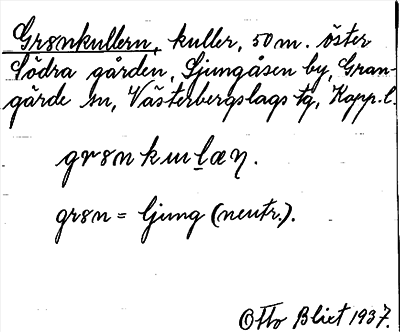 Grønkullern, kuller, 50 m. öster
Södra gården, Ljungåsen by, Gran-
gärde sn, Västerbergslags tg, Kopp. l.
grønkuḷæη.
grøn = ljung (neutr.).
Otto Blixt 1937.